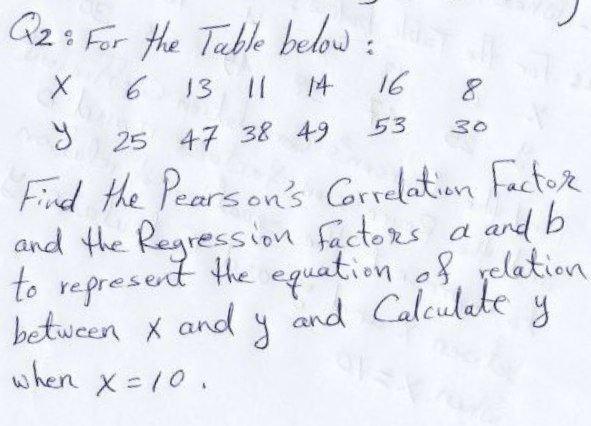 Q2: For the Table below:
X 6 13 11 14 16 8
y 25 47 38 49 53 30
Find the Pearson's Correlation Factor
and the Regression factors a and b
to represent the equation of relation
between x and y and Calculate y
when x = 10.